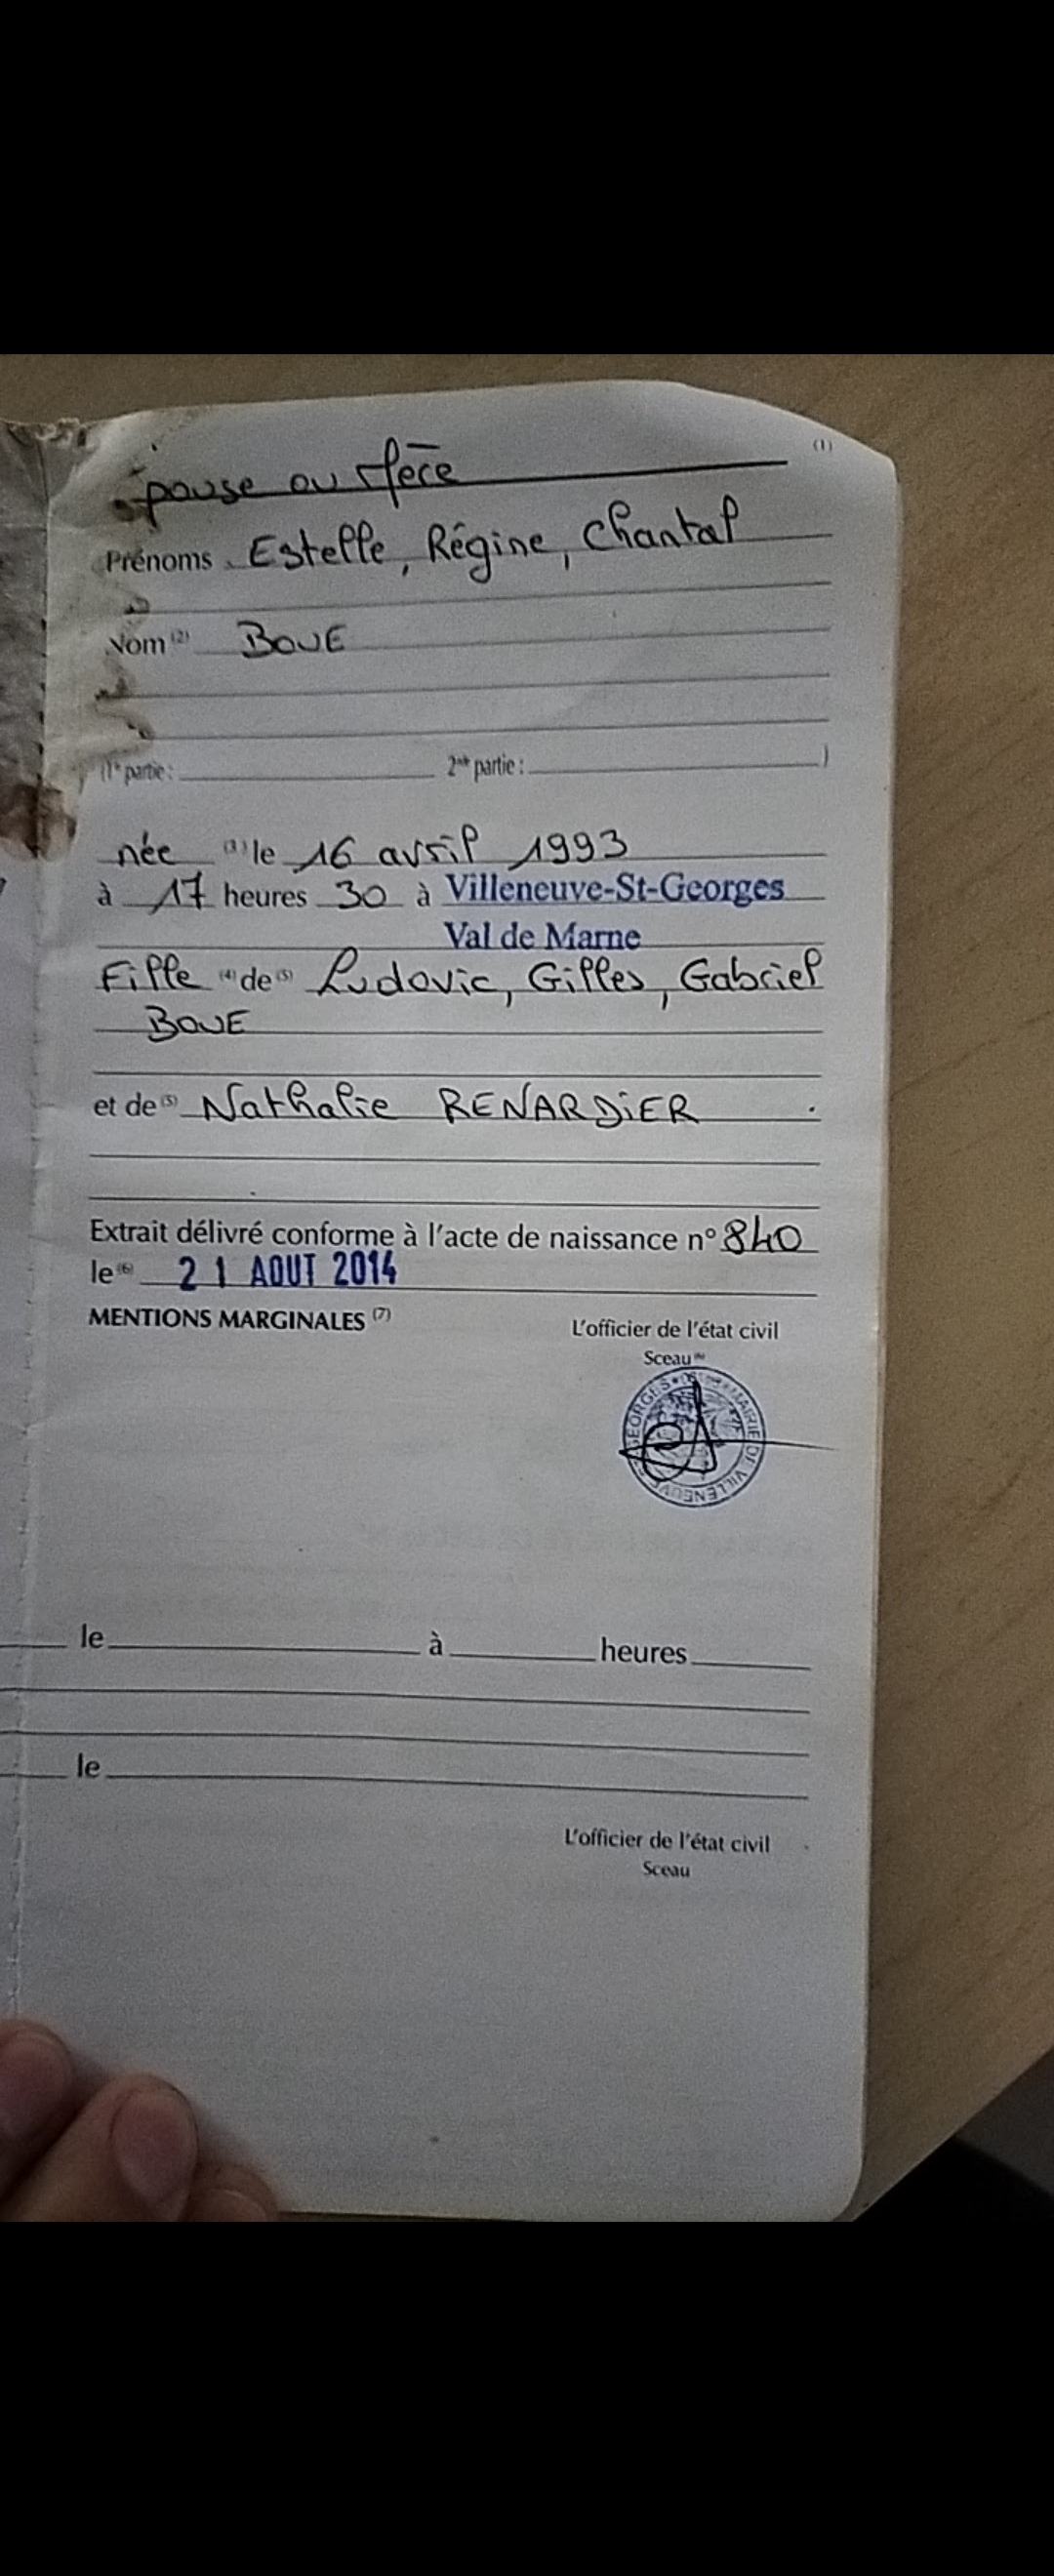 (1)
Épouse ou Mère
Prénoms Estelle, Régine, Chantal
Nom (2) BOUE
(1re partie : 2nde partie : )
née (3) le 16 avril 1993
à 17 heures 30 à Villeneuve-St-Georges
Val de Marne
Fille (4) de (5) Ludovic, Gilles, Gabriel
BOUE
et de (5) Nathalie RENARDIER
Extrait délivré conforme à l'acte de naissance n° 840
le (6) 21 AOUT 2014
MENTIONS MARGINALES (7)
L'officier de l'état civil
Sceau
MAIRIE DE VILLENEUVE GEORGES
le à heures
le
L'officier de l'état civil
Sceau